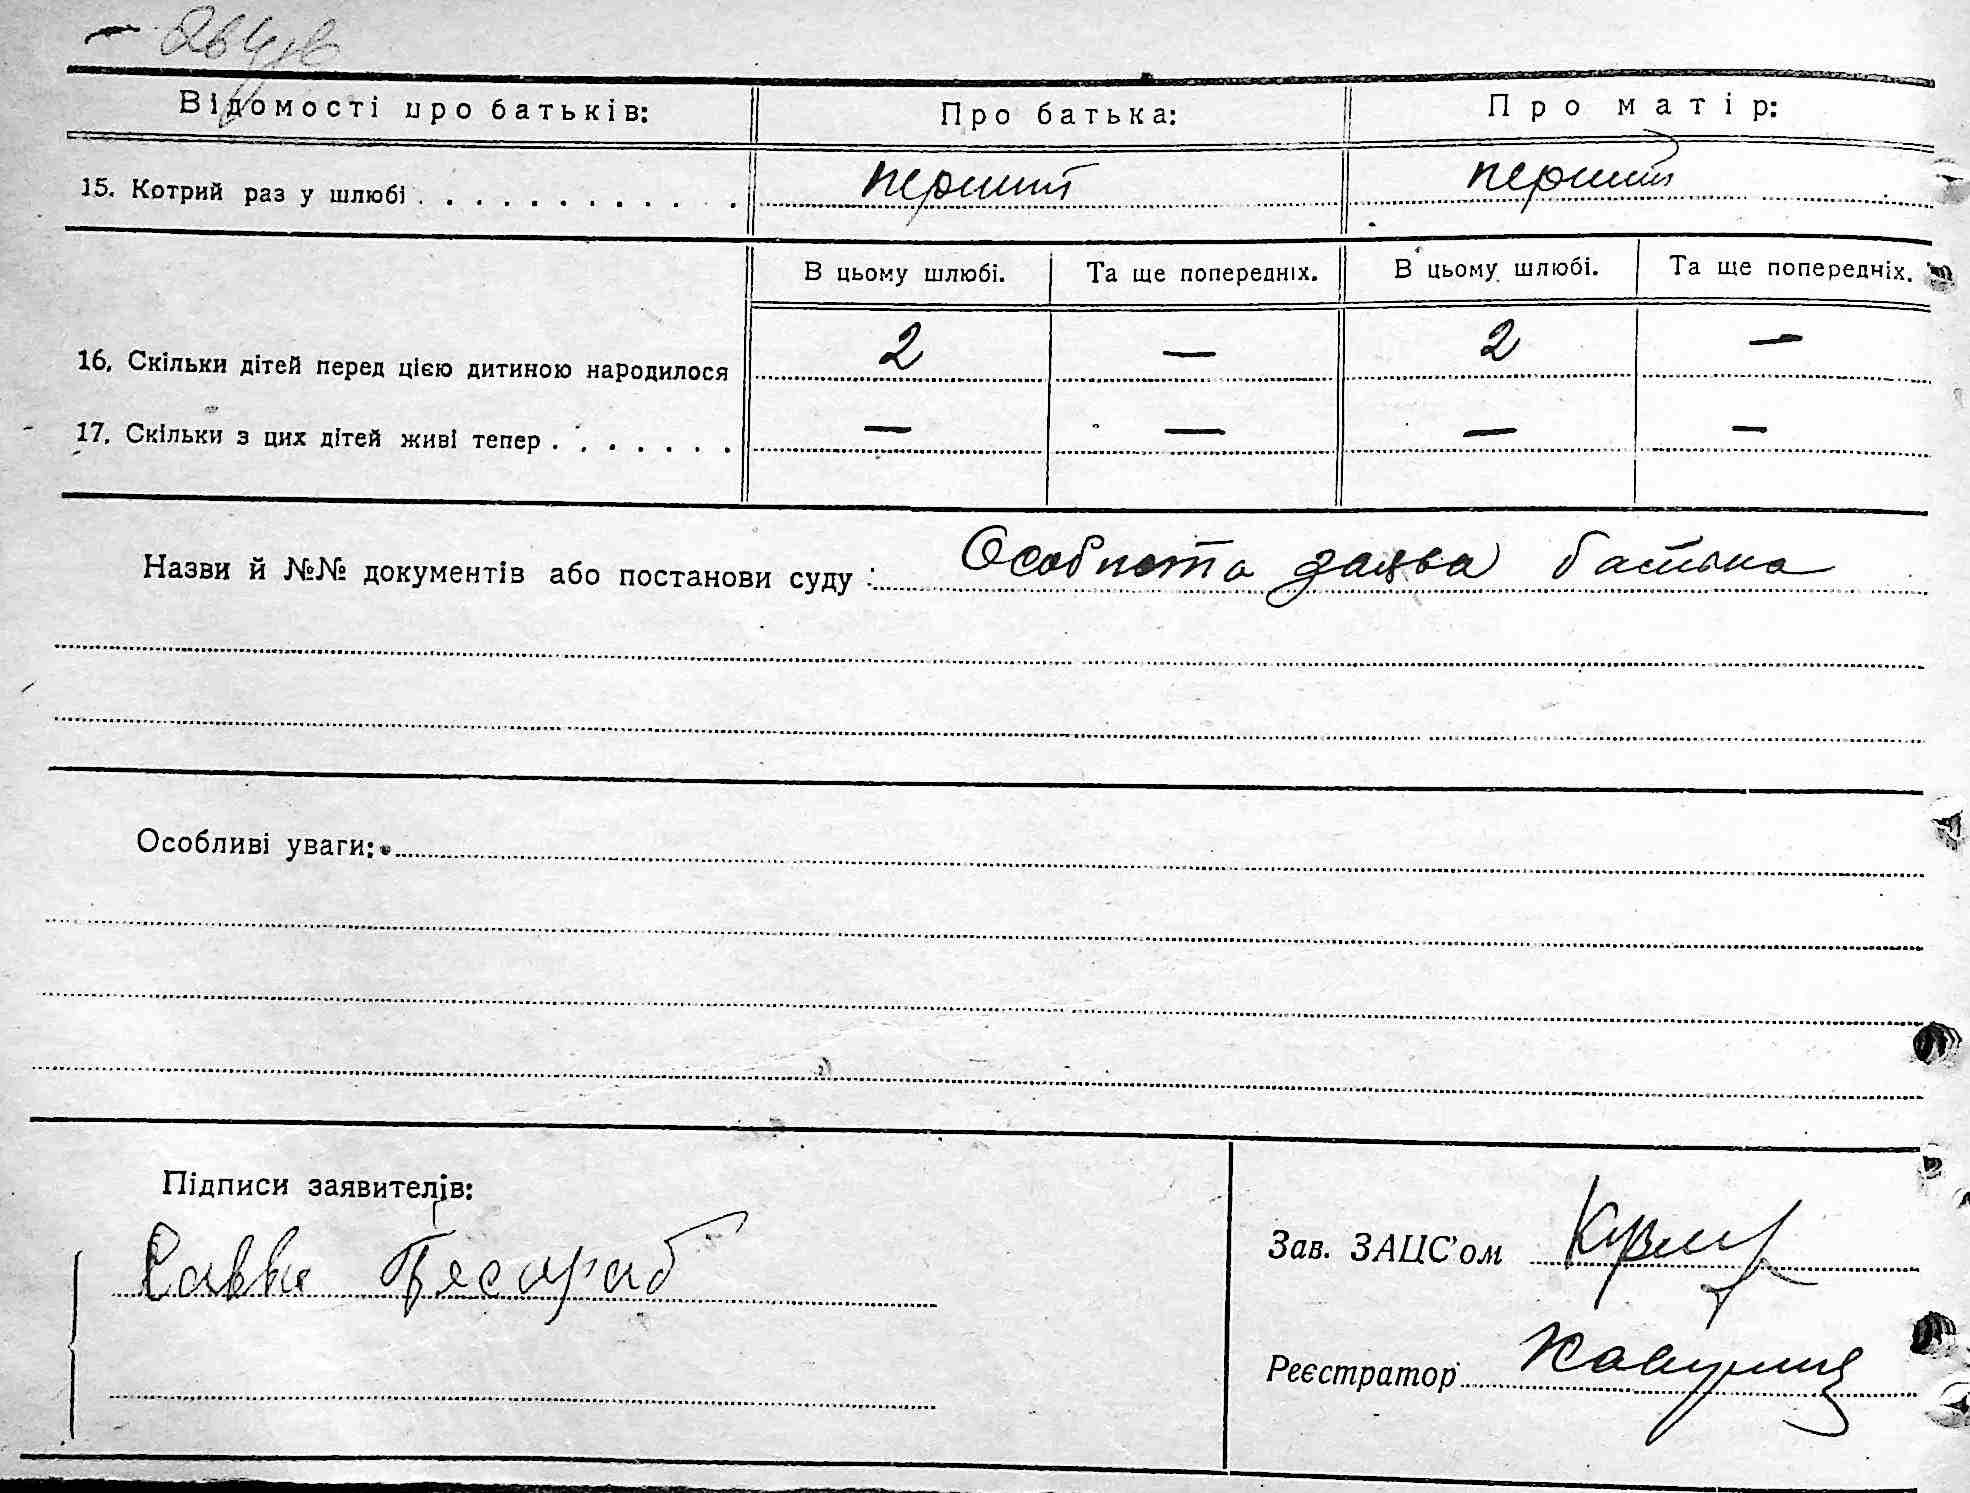 Відомості про батьків:
Про батька:
Про матір:
15. Котрий раз у шлюбі . . . . . . . . . . . .
перший
перший
В цьому шлюбі.
Та ще попередніх.
В цьому шлюбі.
Та ще попередніх.
16. Скільки дітей перед цією дитиною народилося
2
—
2
—
17. Скільки з цих дітей живі тепер . . . . . . .
—
—
—
—
Назви й №№ документів або постанови суду :
Особиста заява батька
Особливі уваги:
Підписи заявителів:
Савва Бесараб
Зав. ЗАЦС'ом
Реєстратор